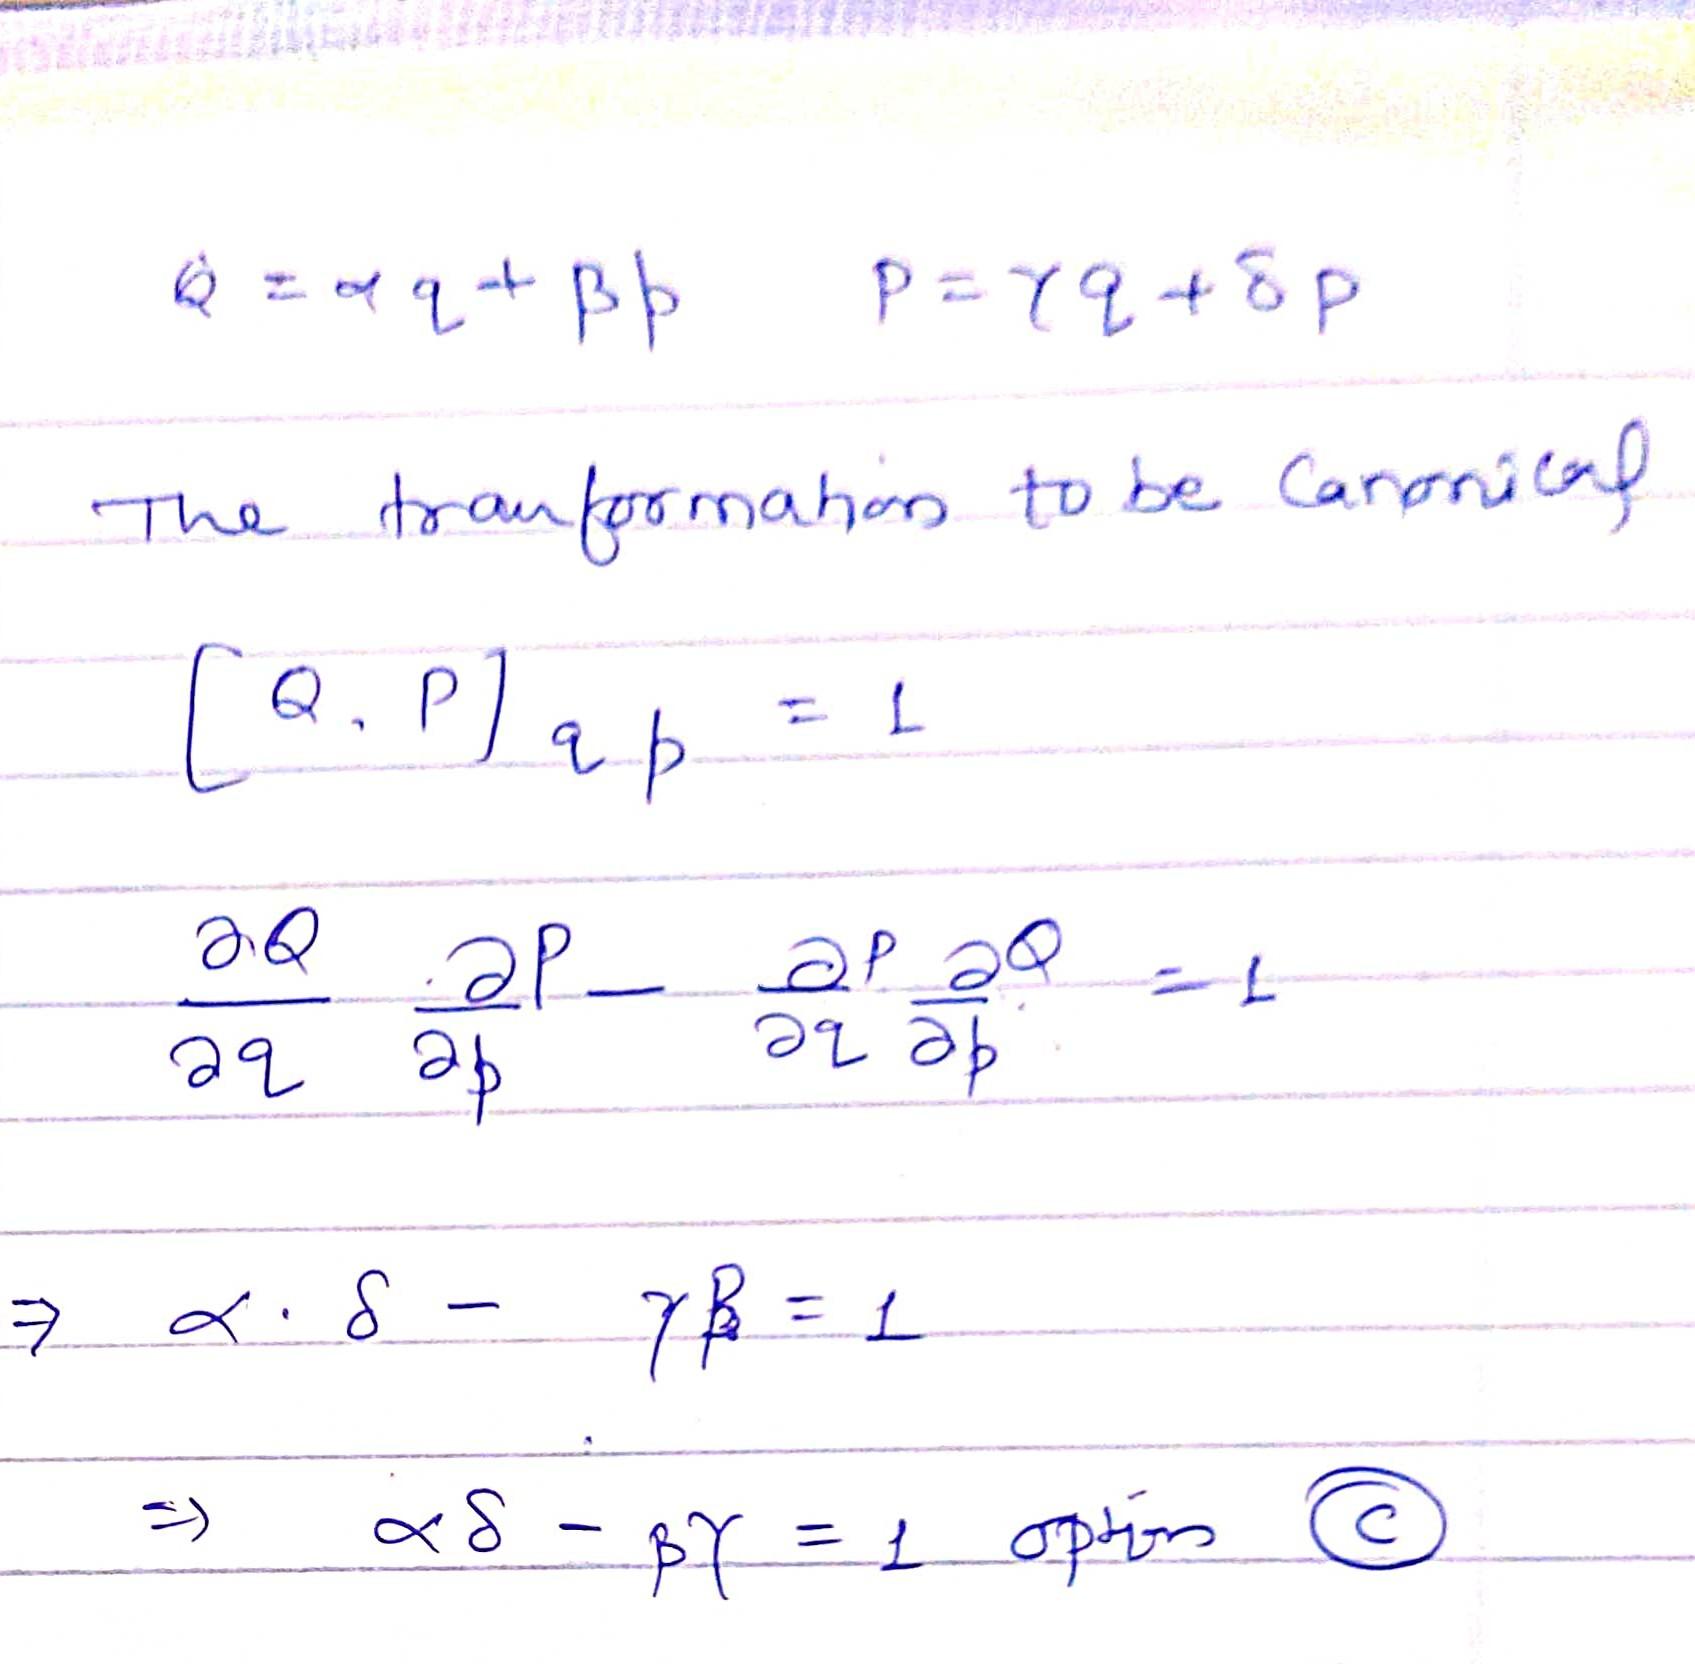 Q = αq + βp P = γq + δp
The tranformation to be Canonical
[Q, P] q p = 1
∂Q/∂q . ∂P/∂p - ∂P/∂q ∂Q/∂p = 1
⇒ α . δ - γβ = 1
⇒ αδ - βγ = 1 option C